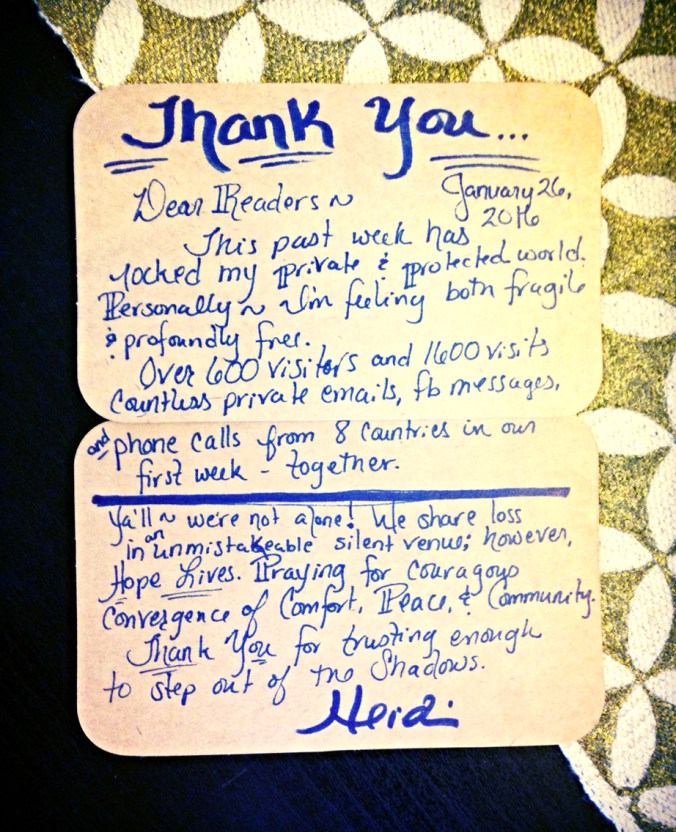 Thank You...
Dear Readers ~ January 26,
2016
This past week has
rocked my private & protected world.
Personally ~ I'm feeling both fragile
& profoundly free.
Over 600 visitors and 1600 visits
Countless private emails, fb messages,
and phone calls from 8 countries in our
first week - together.
Ya'll ~ we're not alone! We share loss
in an unmistakeable silent venue; however,
Hope Lives. Praying for couragous
Convergence of Comfort, Peace, & Community.
Thank You for trusting enough
to step out of the Shadows.
Heidi